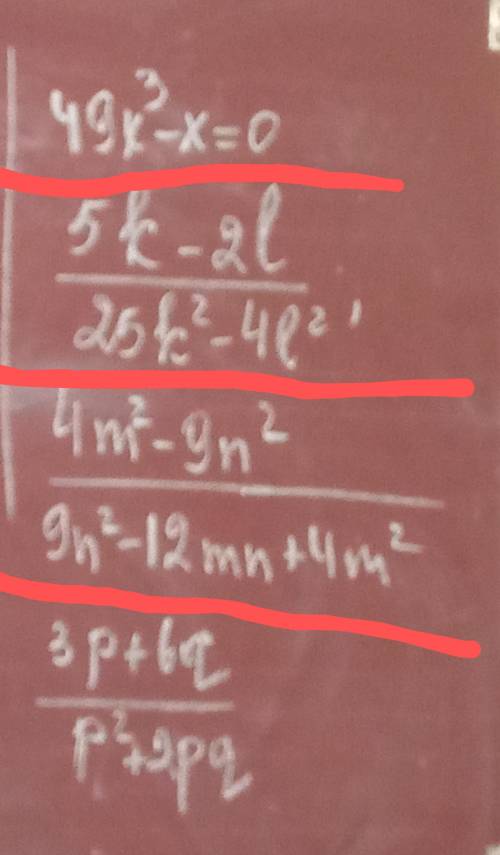 49x³-x=0
5k-2l
25k²-4l²,
4m²-9n²
9n²-12mn+4m²
3p+6q
p²+2pq